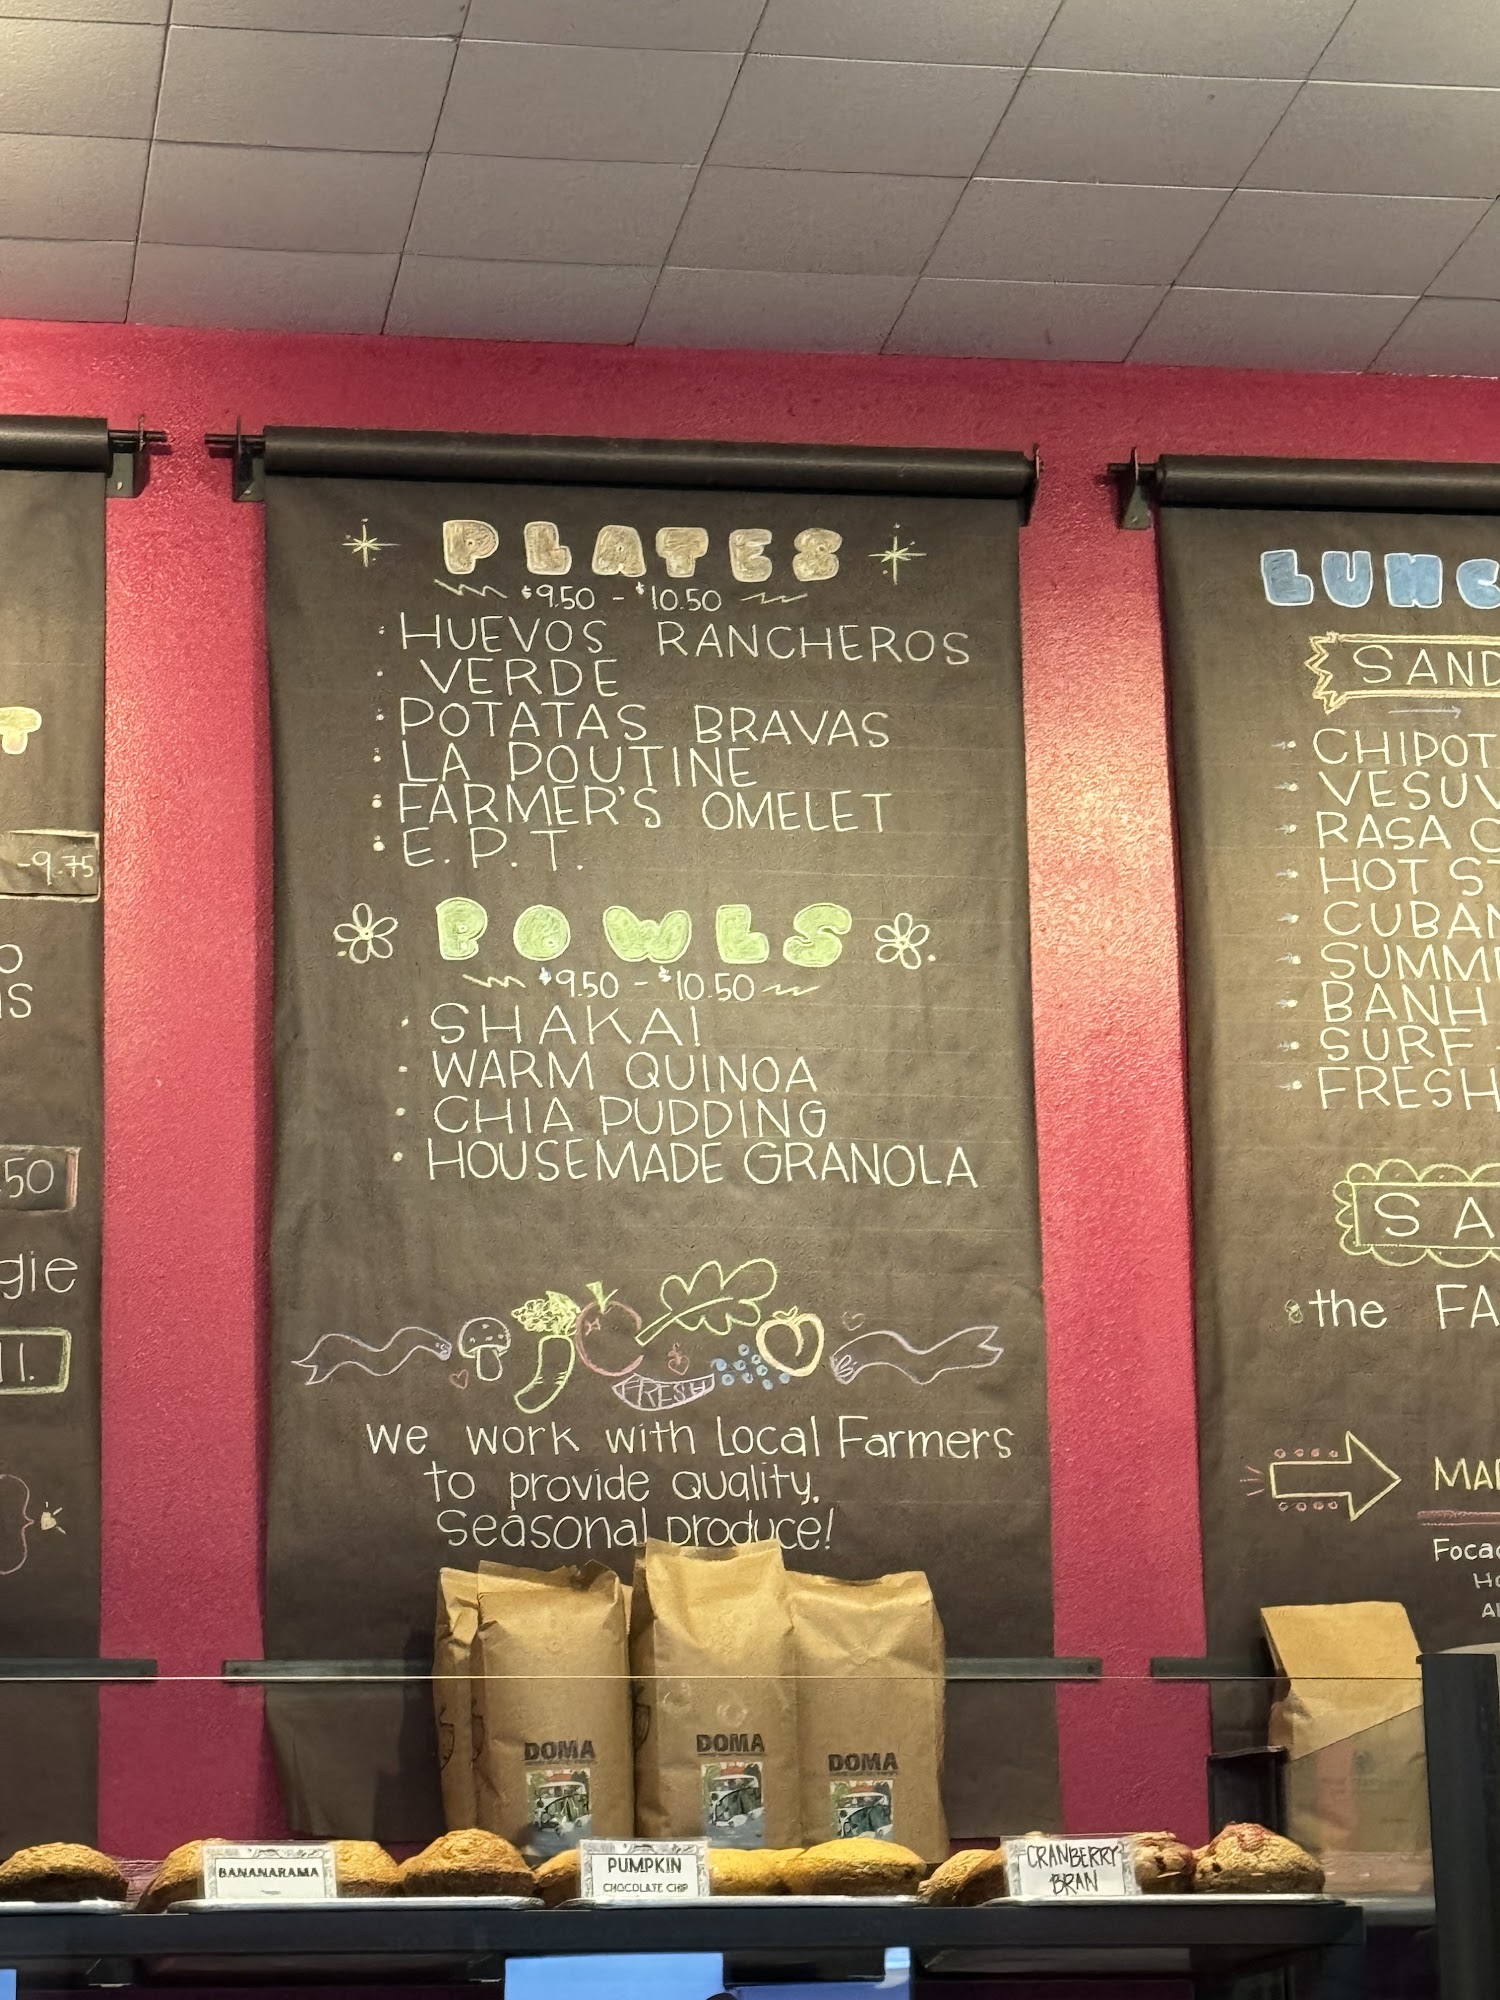 PLATES
$9.50 - $10.50
· HUEVOS RANCHEROS
· VERDE
· POTATAS BRAVAS
· LA POUTINE
· FARMER'S OMELET
· E.P.T.
BOWLS
$9.50 - $10.50
· SHAKAI
· WARM QUINOA
· CHIA PUDDING
· HOUSEMADE GRANOLA
FRESH
we work with Local Farmers
to provide quality,
Seasonal produce!
-9.75
.50
gie
11.
LUNC
SAND
CHIPOT
VESUV
RASA C
HOT ST
CUBAN
SUMM
BANH
SURF
FRESH
SA
the FA
MA
Focac
DOMA
DOMA
DOMA
BANANARAMA
PUMPKIN
CHOCOLATE CHIP
CRANBERRY
BRAN